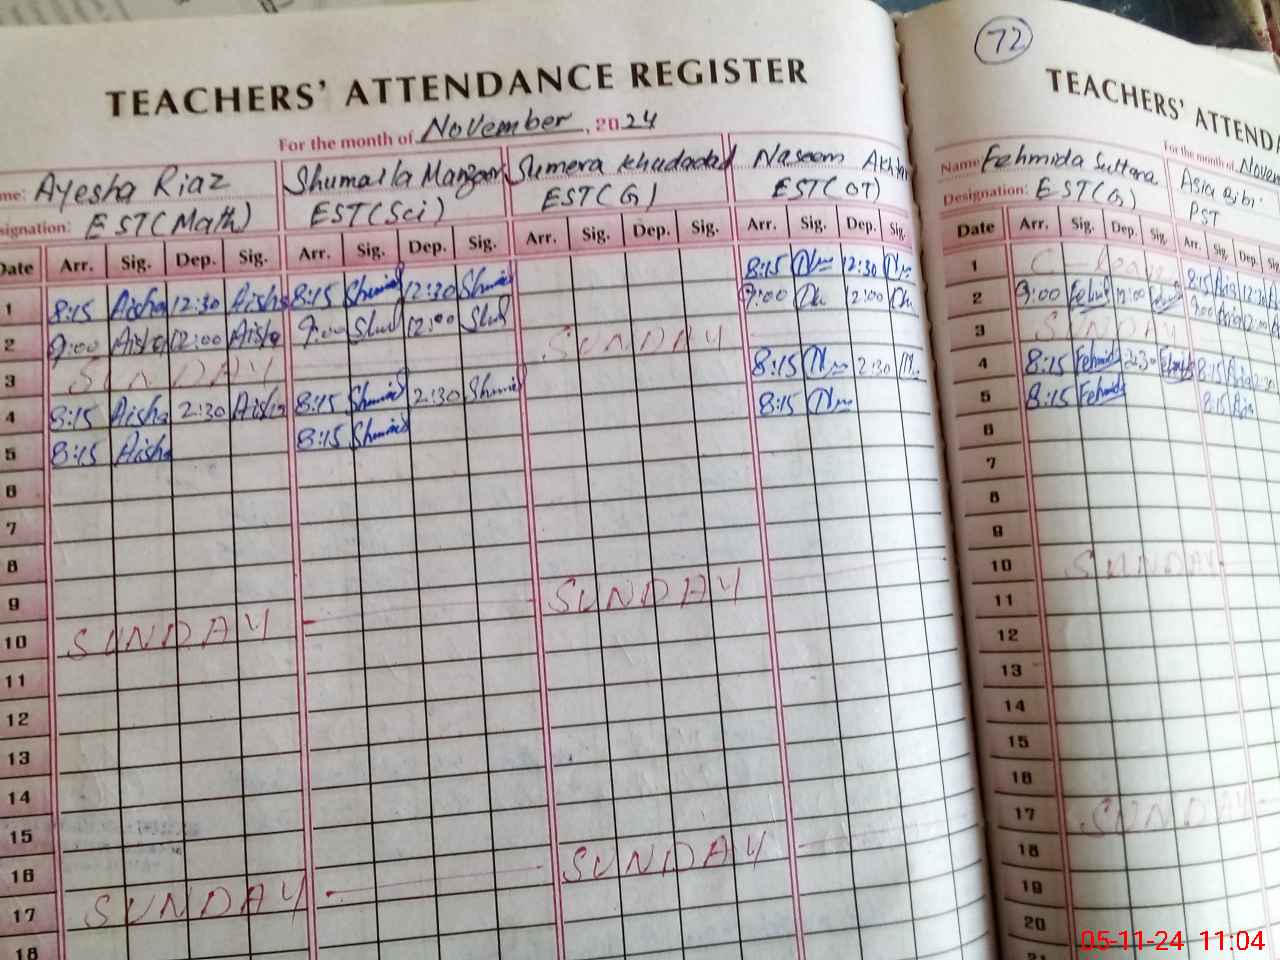 72
TEACHERS' ATTENDANCE REGISTER
For the month of November, 2024
Ayesha Riaz Shumaila Manzoor Sumera Khudadad Naseem
Designation: EST(Math) EST(Sci) EST(G) EST(OT)
Date Arr. Sig. Dep. Sig. Arr. Sig. Dep. Sig. Arr. Sig. Dep. Sig. Arr. Sig. Dep. Sig.
1 8:15 Aisha 12:30 Aisha 8:15 12:30 8:15 12:30
2 9:00 Aisha 12:00 Aisha 9:00 12:00 9:00 12:00
3 SUNDAY SUNDAY
4 8:15 Aisha 2:30 Aisha 8:15 2:30 8:15 2:30
5 8:15 Aisha 8:15 8:15
6
7
8
9
10 SUNDAY SUNDAY
11
12
13
14
15
16
17 SUNDAY SUNDAY
18
TEACHERS' ATTENDA
For the month of Novem
Name: Fehmida Sultana Asia Bibi
Designation: EST(G) PST
Date Arr. Sig. Dep. Sig. Arr. Sig. Dep.
1 8:15 Asia 12:30
2 9:00 12:00 9:00 Asia
3 SUNDAY
4 8:15 Fehmida 2:30 8:15 Asia 2:30
5 8:15 Fehmida 8:15 Asia
6
7
8
9
10 SUNDAY
11
12
13
14
15
16
17 SUNDAY
18
19
20
05-11-24 11:04